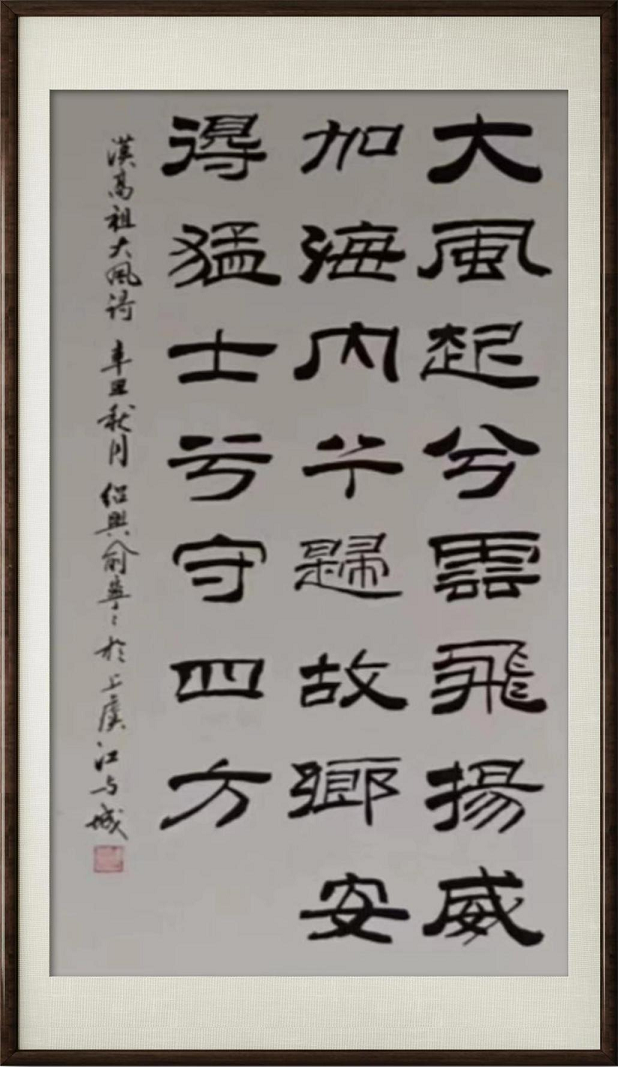 大風起兮雲飛揚威
加海內兮歸故鄉安
得猛士兮守四方
漢高祖大風詩 辛丑秋月 紹興俞寧寧於上虞江与城